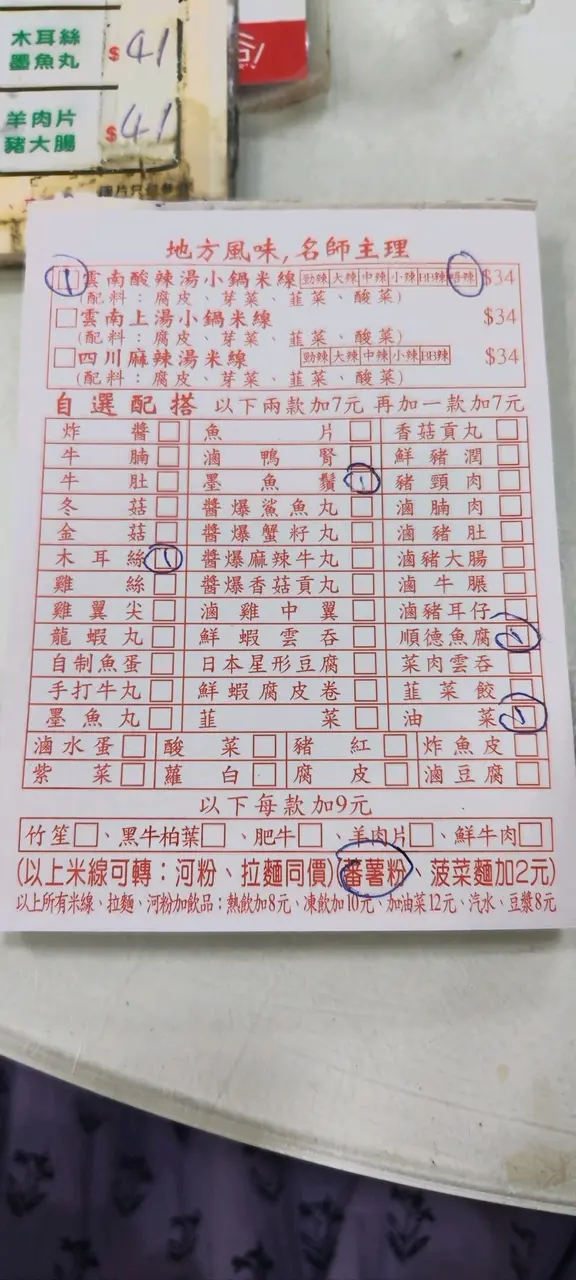 木耳絲 $41
墨魚丸
羊肉片 $41
豬大腸
地方風味,名師主理
1 雲南酸辣湯小鍋米線 勁辣 大辣 中辣 小辣 BB辣 唔辣 $34
(配料：腐皮、芽菜、韮菜、酸菜)
□雲南上湯小鍋米線 $34
(配料：腐皮、芽菜、韮菜、酸菜)
□四川麻辣湯米線 勁辣 大辣 中辣 小辣 BB辣 $34
(配料：腐皮、芽菜、韮菜、酸菜)
自選配搭 以下兩款加7元 再加一款加7元
炸醬□ 魚片□ 香菇貢丸□
牛腩□ 滷鴨腎□ 鮮豬潤□
牛肚□ 墨魚鬚 1 豬頸肉□
冬菇□ 醬爆鯊魚丸□ 滷腩肉□
金菇□ 醬爆蟹籽丸□ 滷豬肚□
木耳絲 1 醬爆麻辣牛丸□ 滷豬大腸□
雞絲□ 醬爆香菇貢丸□ 滷牛𦟌□
雞翼尖□ 滷雞中翼□ 滷豬耳仔□
龍蝦丸□ 鮮蝦雲吞□ 順德魚腐 1
自制魚蛋□ 日本星形豆腐□ 菜肉雲吞□
手打牛丸□ 鮮蝦腐皮卷□ 韮菜餃□
墨魚丸□ 韮菜□ 油菜 1
滷水蛋□ 酸菜□ 豬紅□ 炸魚皮□
紫菜□ 蘿白□ 腐皮□ 滷豆腐□
以下每款加9元
竹笙□、黑牛柏葉□、肥牛□、羊肉片□、鮮牛肉□
(以上米線可轉：河粉、拉麵同價)(蕃薯粉、菠菜麵加2元)
以上所有米線、拉麵、河粉加飲品：熱飲加8元、凍飲加10元、加油菜12元、汽水、豆漿8元